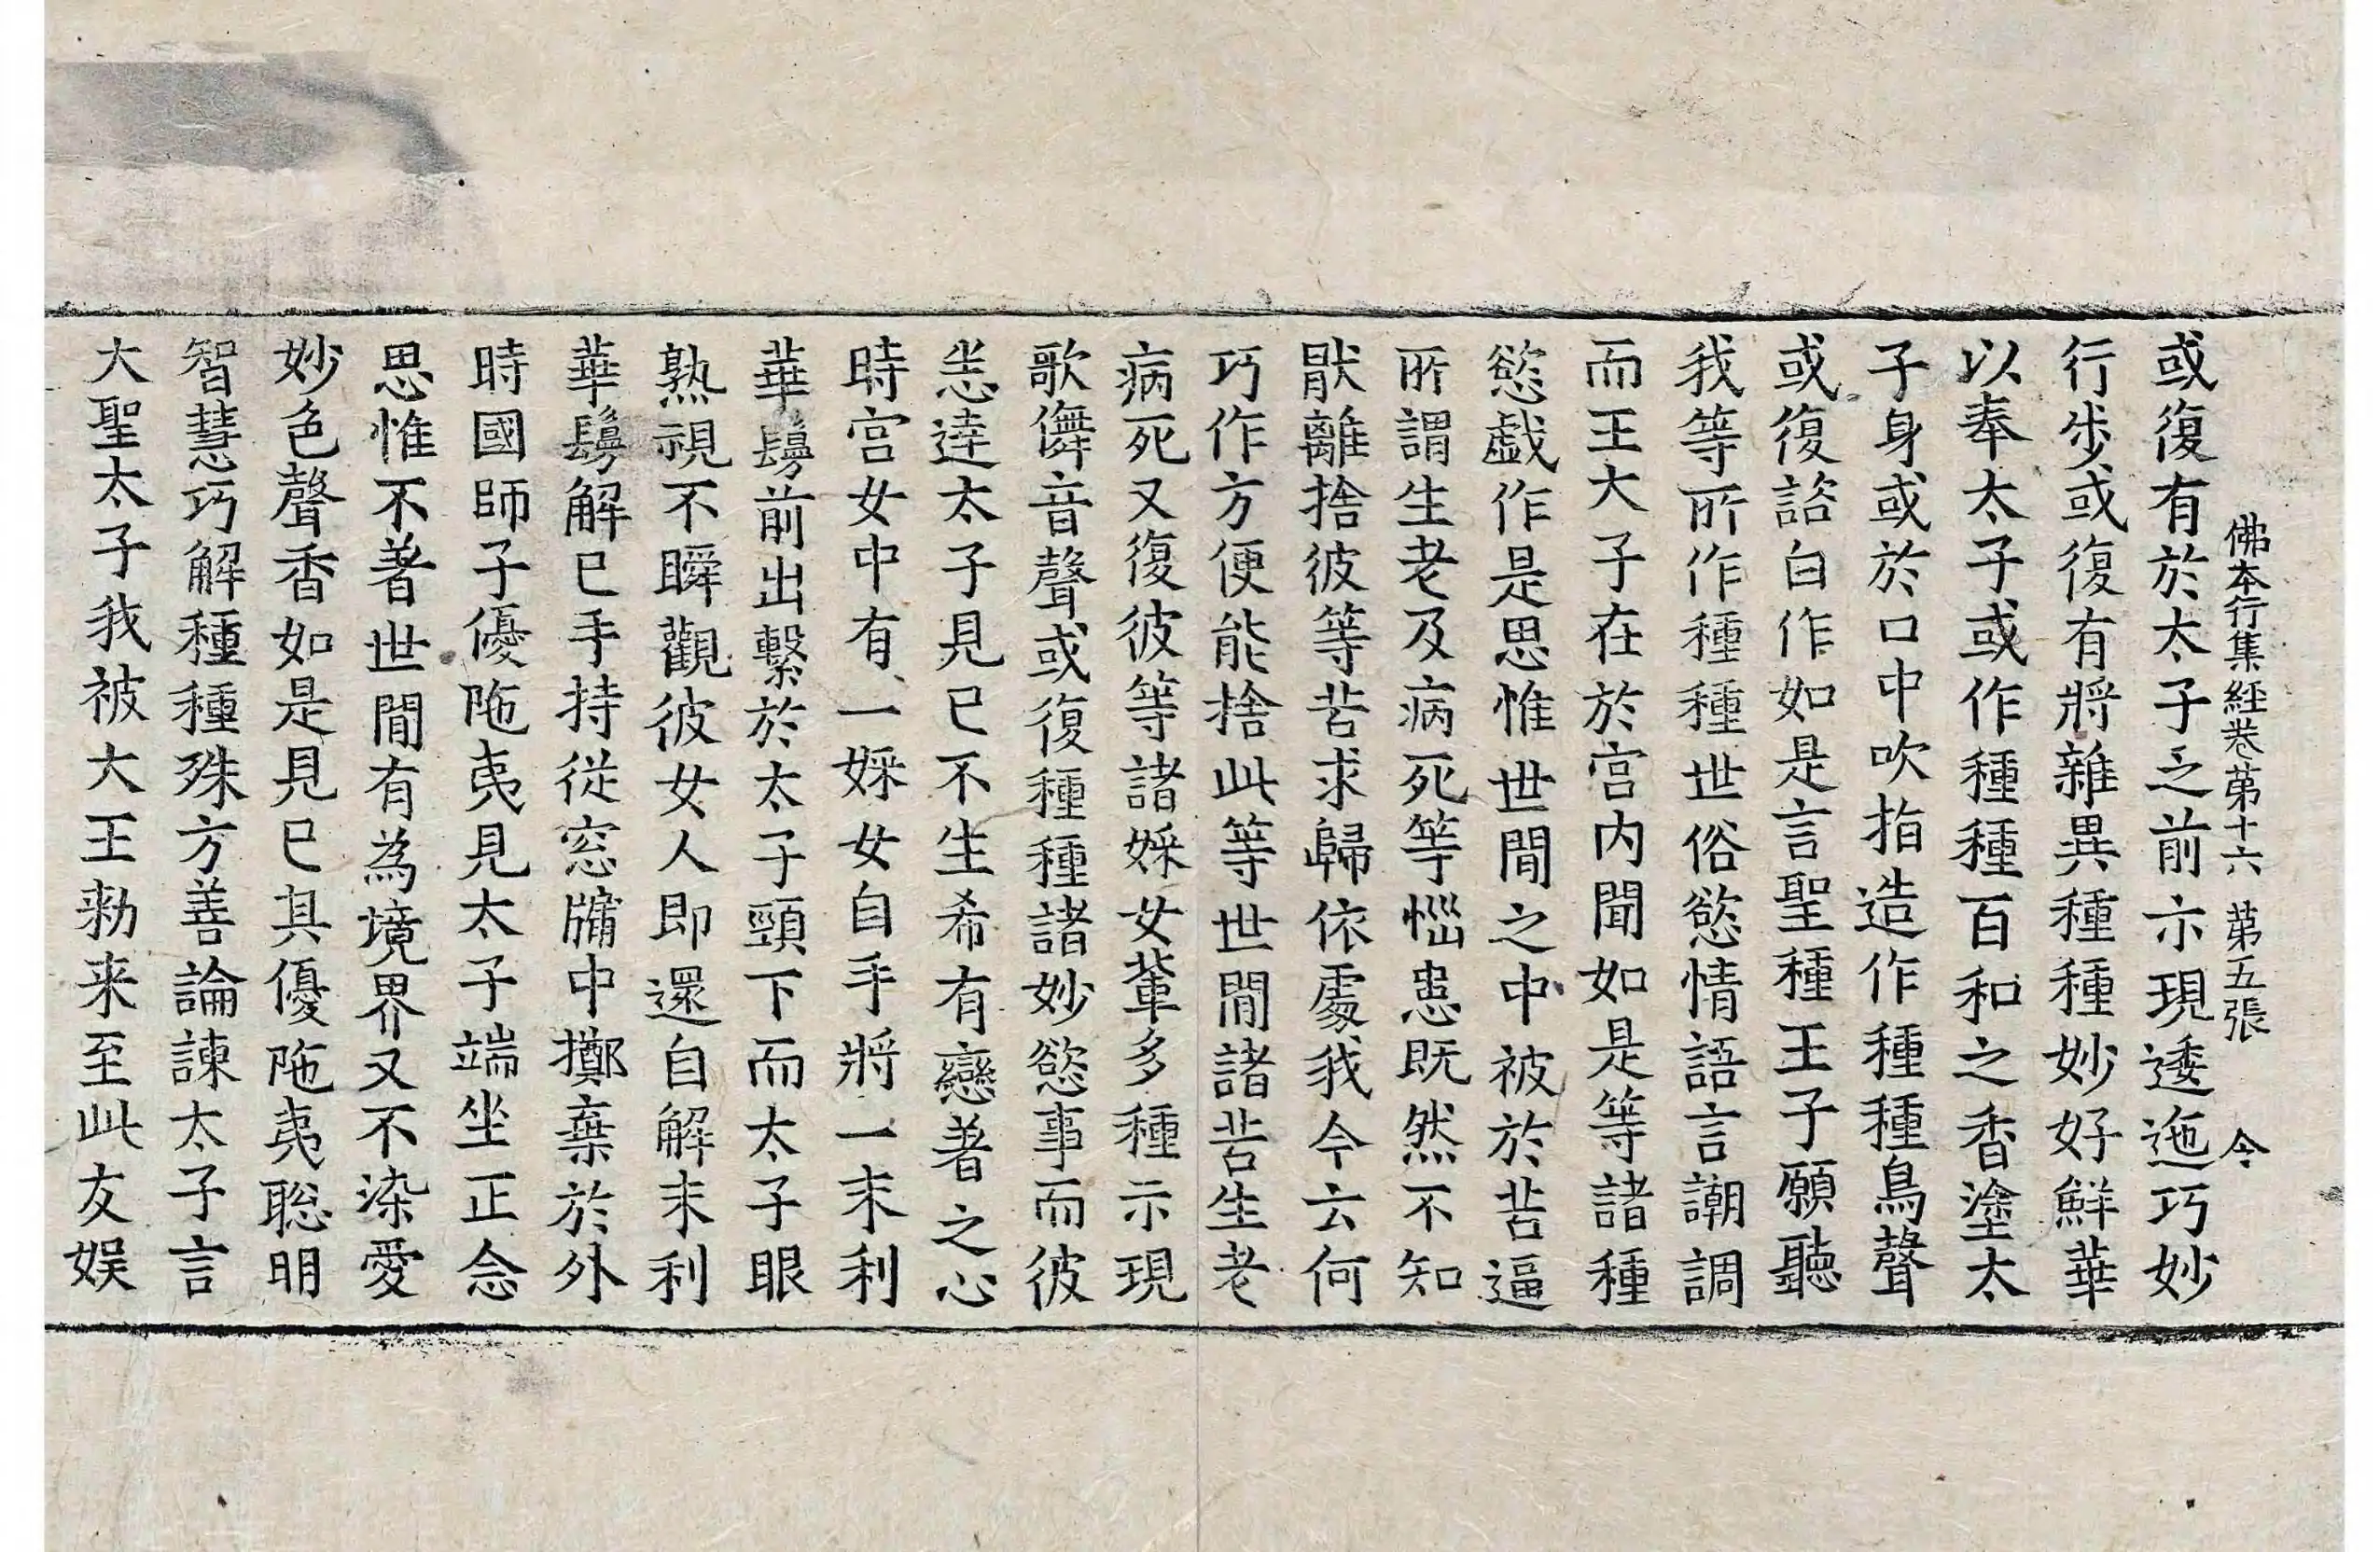 佛本行集経巻苐十六　苐五張　令
或復有於太子之前示現逶迤巧妙
行步或復有將雜異種種妙好鮮華
以奉太子或作種種百和之香塗太
子身或於口中吹指造作種種鳥聲
或復諮白作如是言聖種王子願聽
我等所作種種世俗慾情語言謿調
而王大子在於宫内聞如是等諸種
慾戯作是思惟世間之中被於苦逼
所謂生老及病死等惱患既然不知
猒離捨彼等苦求歸依處我今云何
巧作方便能捨此等世間諸苦生老
病死又復彼等諸婇女輩多種示現
歌儛音聲或復種種諸妙慾事而彼
恙逹太子見已不生希有戀著之心
時宫女中有一婇女自手將一末利
華鬘前出繫於太子頸下而太子眼
熟視不瞬觀彼女人即還自解末利
華鬘解已手持從窓牗中擲棄於外
時國師子優陁夷見太子端坐正念
思惟不著世間有為境界又不染愛
妙色聲香如是見已其優陁夷聡明
智慧巧解種種殊方善論諫太子言
大聖太子我被大王勑来至此友娱